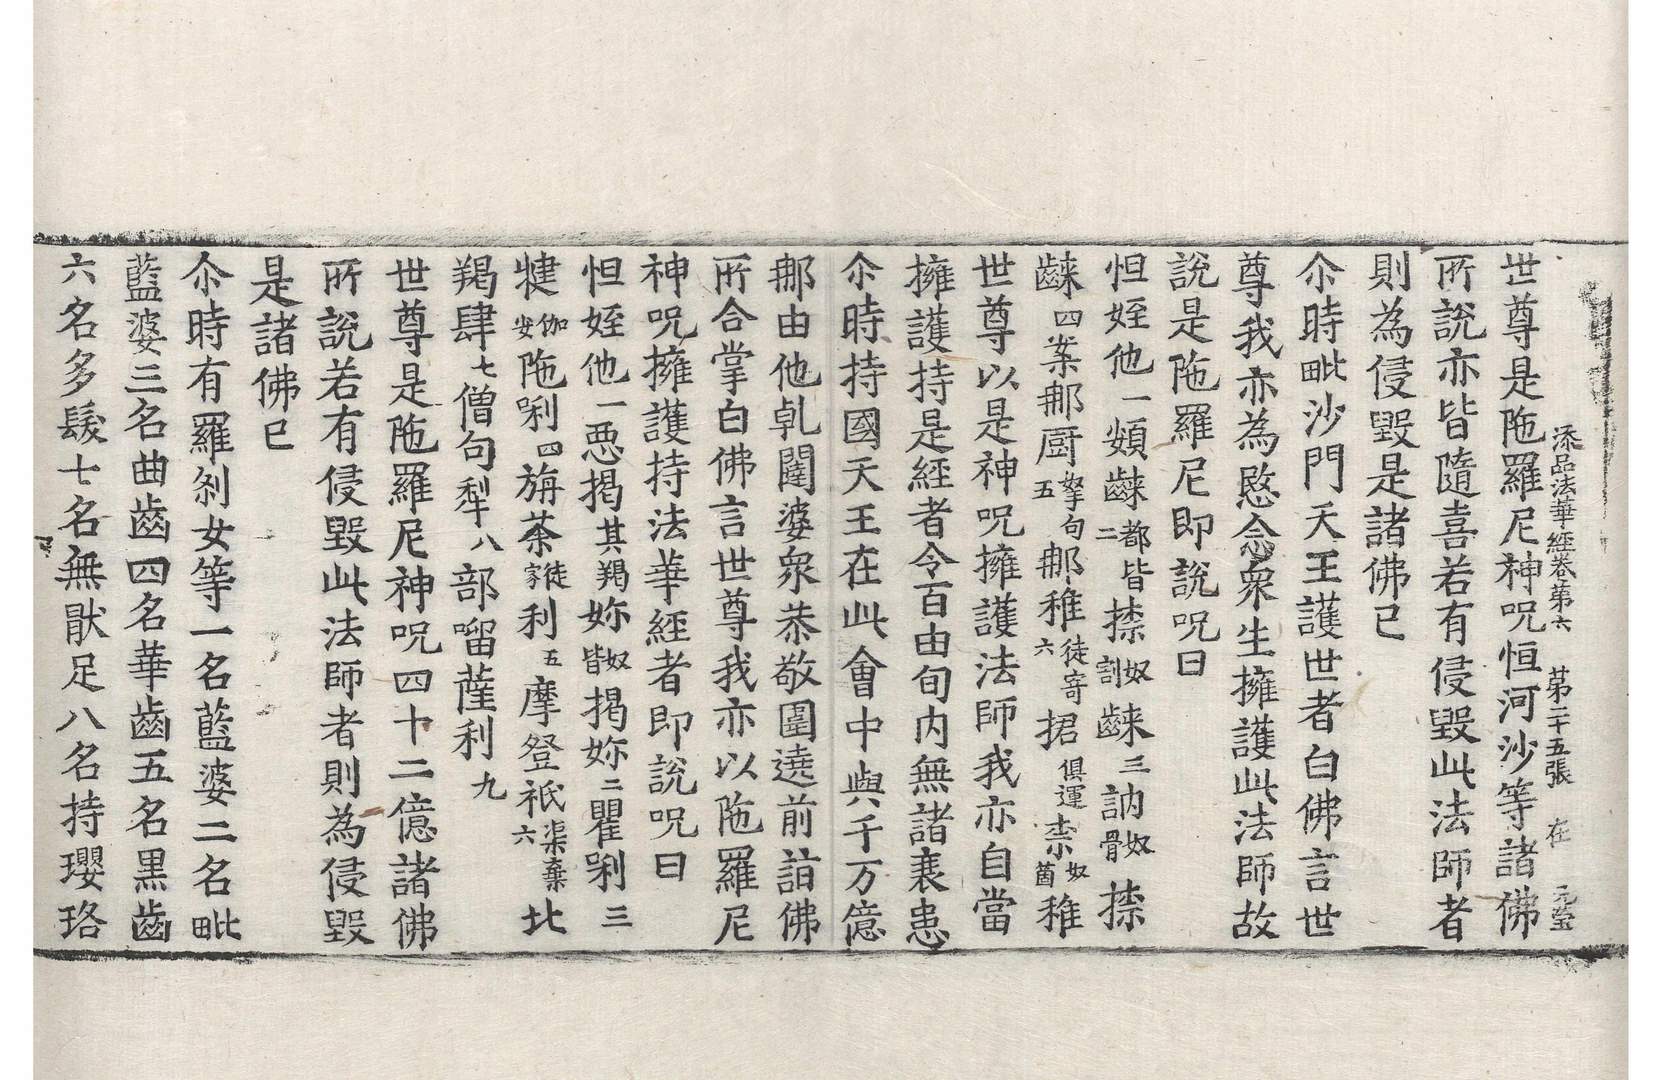 添品法華經卷第六 第二十五張 在 元瑩
世尊是陁羅尼神呪恒河沙等諸佛
所說亦皆隨喜若有侵毀此法師者
則為侵毀是諸佛已
尒時毗沙門天王護世者白佛言世
尊我亦為愍念衆生擁護此法師故
說是陁羅尼即說呪曰
怛姪他一頞䶘都皆二㮈奴割䶘三訥奴骨㮈
䶘四案那厨拏句五那稚徒寄六捃俱運柰奴箇稚
世尊以是神呪擁護法師我亦自當
擁護持是經者令百由旬內無諸衰患
尒時持國天王在此會中與千万億
那由他乹闥婆衆恭敬圍遶前詣佛
所合掌白佛言世尊我亦以陁羅尼
神呪擁護持法華經者即說呪曰
怛姪他一惡揭其羯妳奴皆揭妳二瞿唎三
㨗伽安陁唎四旃荼徒家利五摩登祇渠棄六北
羯肆七僧句犁八部㗚薩利九
世尊是陁羅尼神呪四十二億諸佛
所說若有侵毀此法師者則為侵毀
是諸佛已
尒時有羅剎女等一名藍婆二名毗
藍婆三名曲齒四名華齒五名黑齒
六名多髮七名無猒足八名持瓔珞